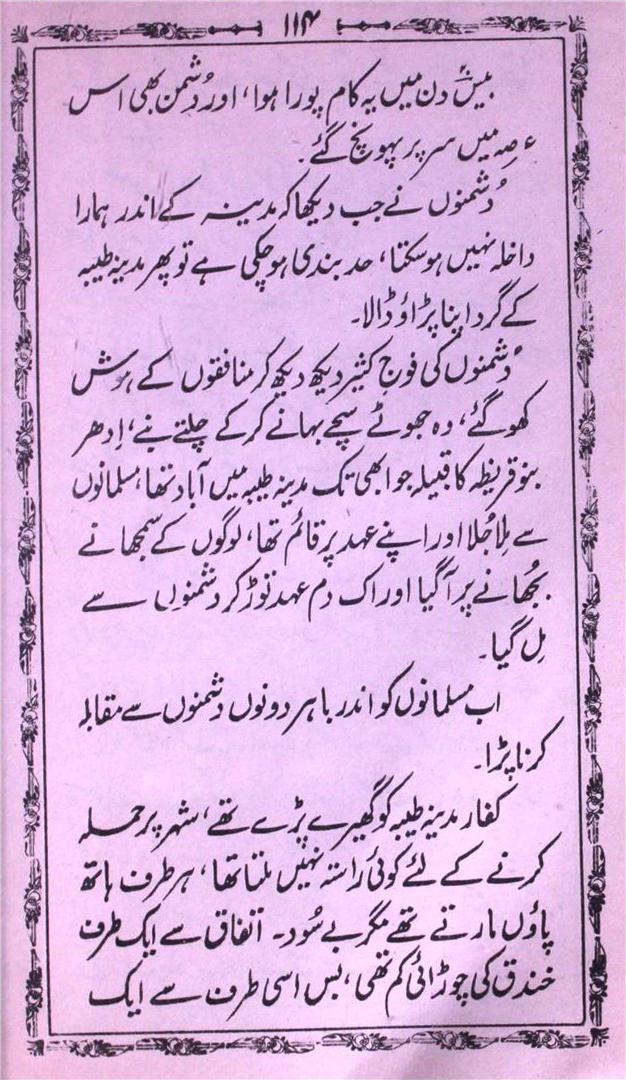 ۱۱۴
بیسؔ دن میں یہ کام پورا ہوا، اور دُشمن بھی اس
عرصہ میں سر پر پہونچ گئے۔
دُشمنوں نے جب دیکھا کہ مدینہ کے اندر ہمارا
داخلہ نہیں ہوسکتا، حد بندی ہوچکی ہے تو پھر مدینہ طیبہ
کے گرد اپنا پڑاؤ ڈالا۔
دُشمنوں کی فوجِ کثیر دیکھ دیکھ کر منافقوں کے ہوش
کھو گئے، وہ جھوٹے سچے بہانے کرکے چلتے بنے، اِدھر
بنو قریظہ کا قبیلہ جو ابھی تک مدینہ طیبہ میں آباد تھا، مسلمانوں
سے مِلا جُلا اور اپنے عہد پر قائم تھا، لوگوں کے سمجھانے
بجُھانے پر آگیا اور اک دم عہد توڑ کر دشمنوں سے
مِل گیا۔
اب مسلمانوں کو اندر باہر دونوں دشمنوں سے مقابلہ
کرنا پڑا۔
کفار مدینہ طیبہ کو گھیرے پڑے تھے، شہر پر حملہ
کرنے کے لئے کوئی راستہ نہیں ملتا تھا، ہر طرف ہاتھ
پاؤں مارتے تھے مگر بے سُود۔ اتفاق سے ایک طرف
خندق کی چوڑائی کم تھی، بس اسی طرف سے ایک